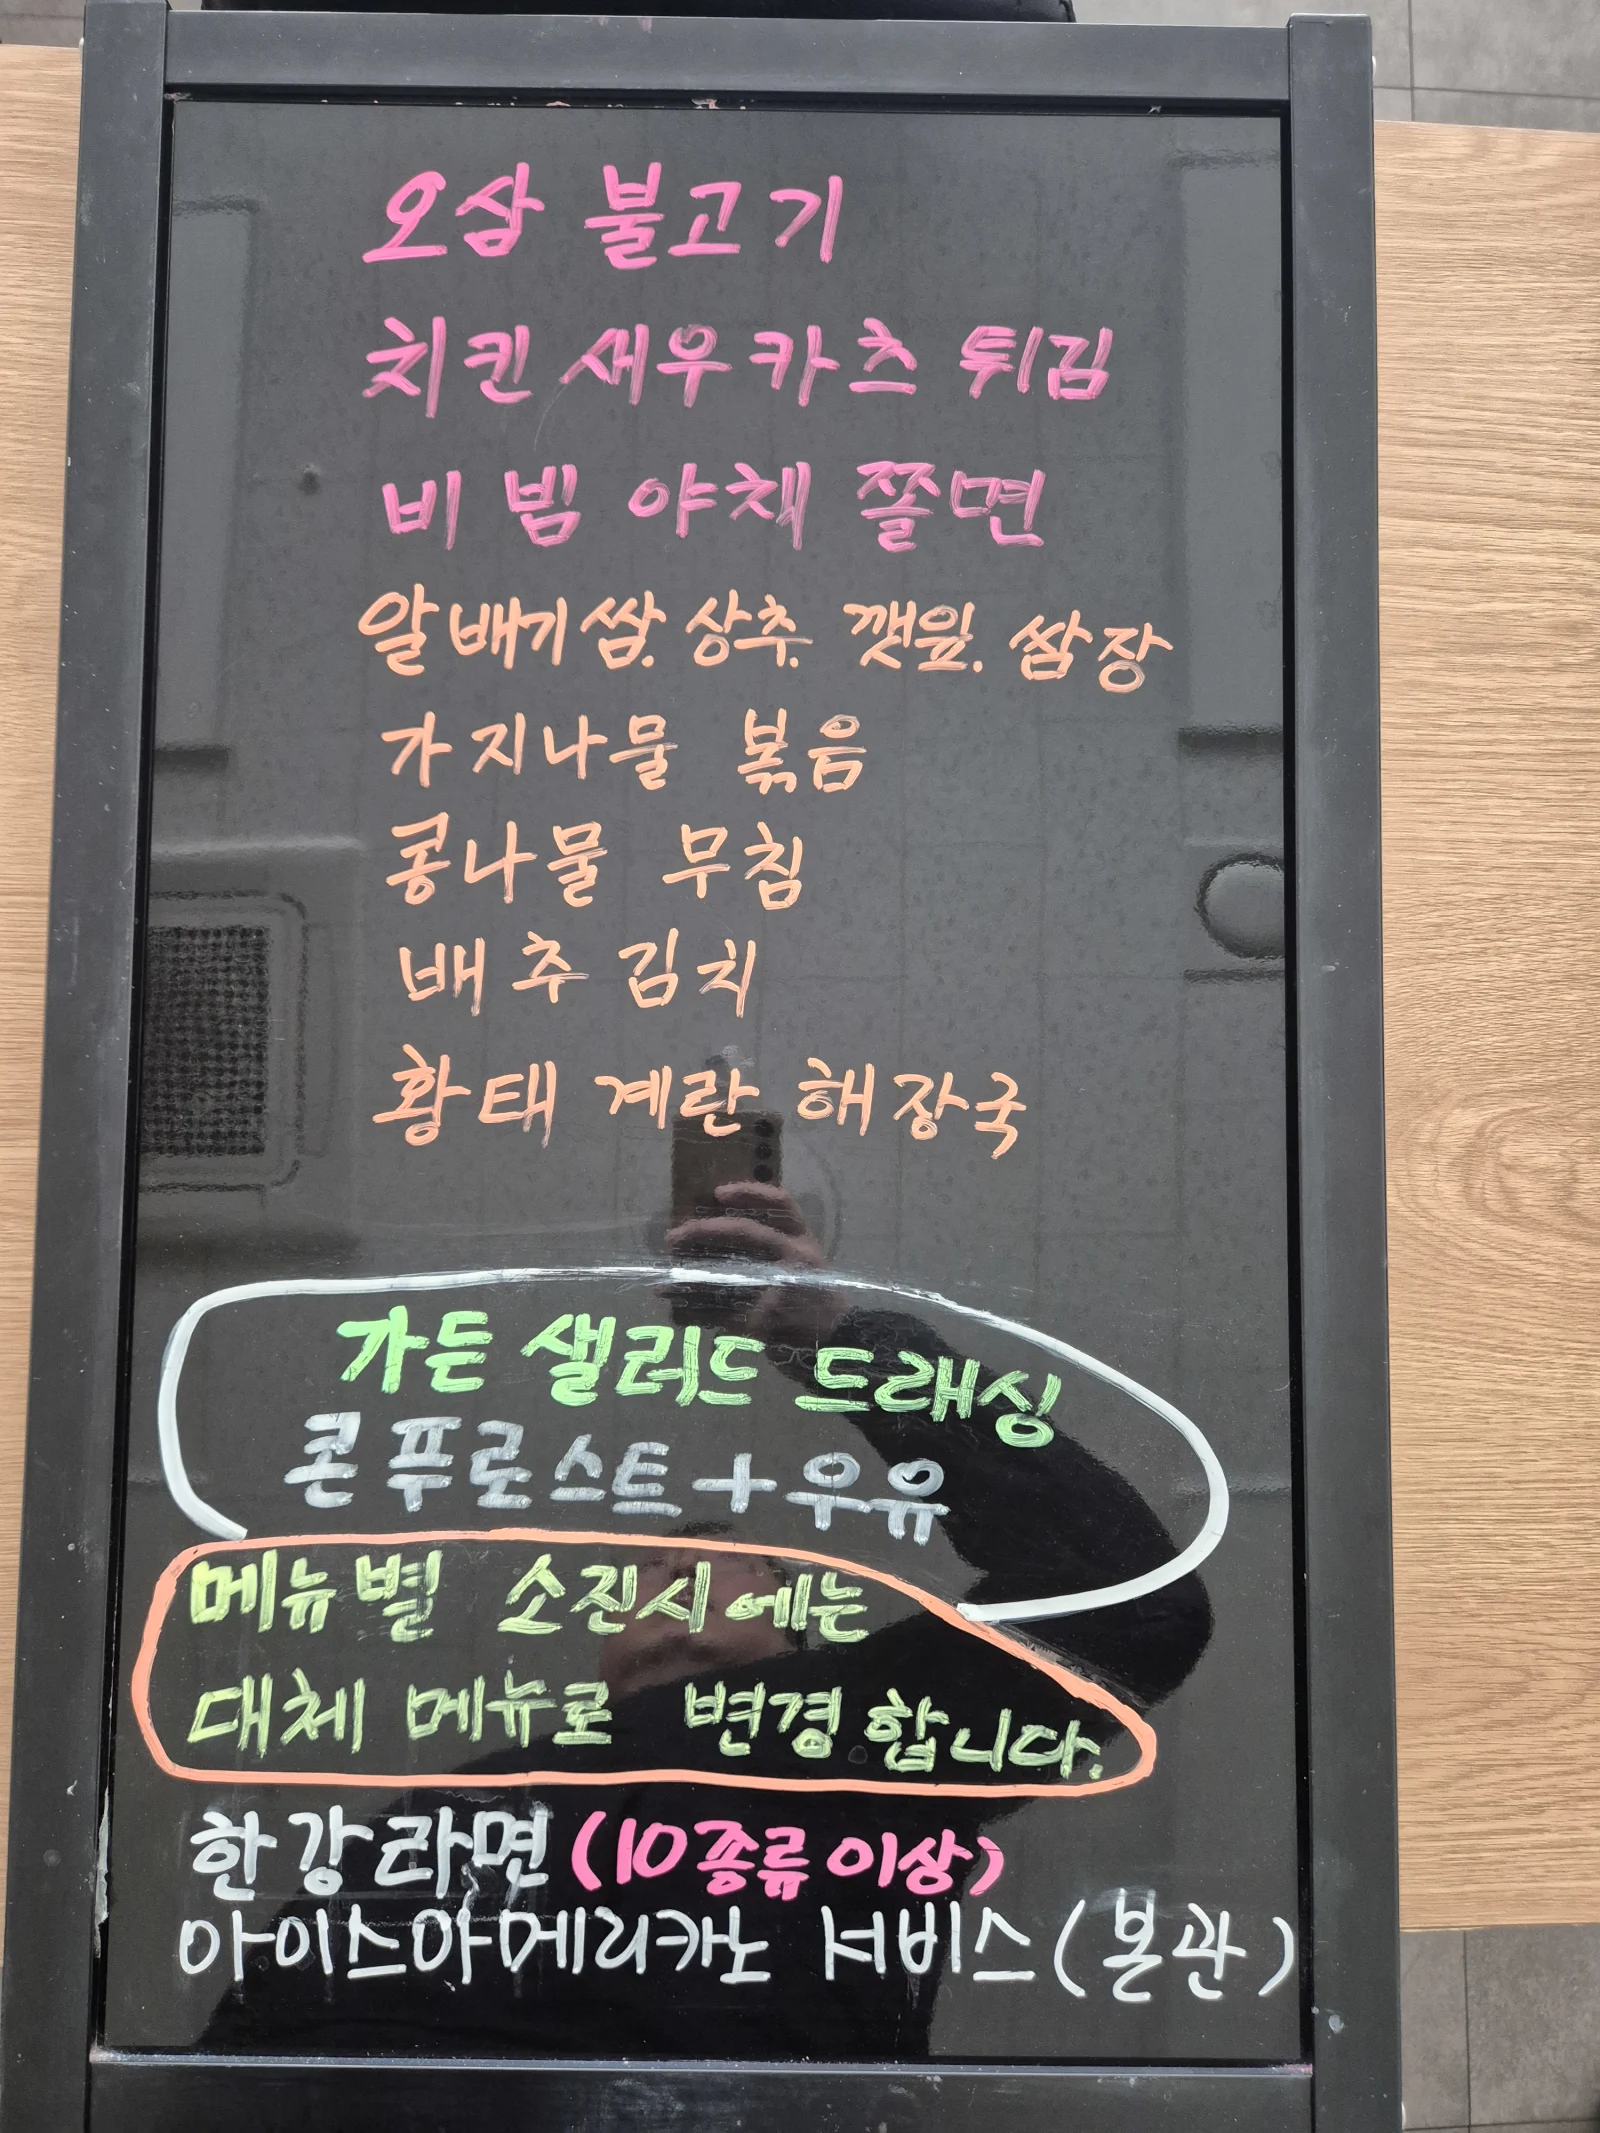 오삼 불고기
치킨 새우 카츠 튀김
비빔 야채 쫄면
알배기쌈. 상추. 깻잎. 쌈장
가지나물 볶음
콩나물 무침
배추김치
황태 계란 해장국
가든 샐러드 드래싱
콘푸로스트+우유
메뉴별 소진시에는
대체 메뉴로 변경합니다.
한강라면 (10종류이상)
아이스아메리카노 서비스(본관)